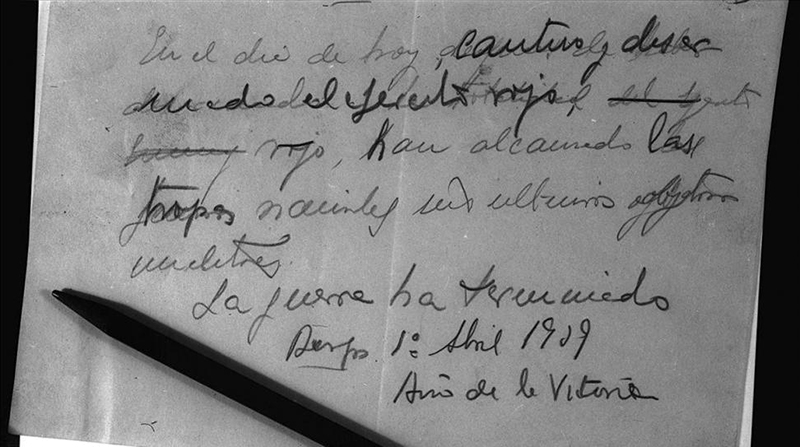 En el día de hoy, cautivo y desar
mado el Ejercito rojo,
rojo, han alcanzado las
tropas nacionales sus ultimos objetivos
militares.
La guerra ha terminado
Burgos 1º Abril 1939
Año de la Victoria